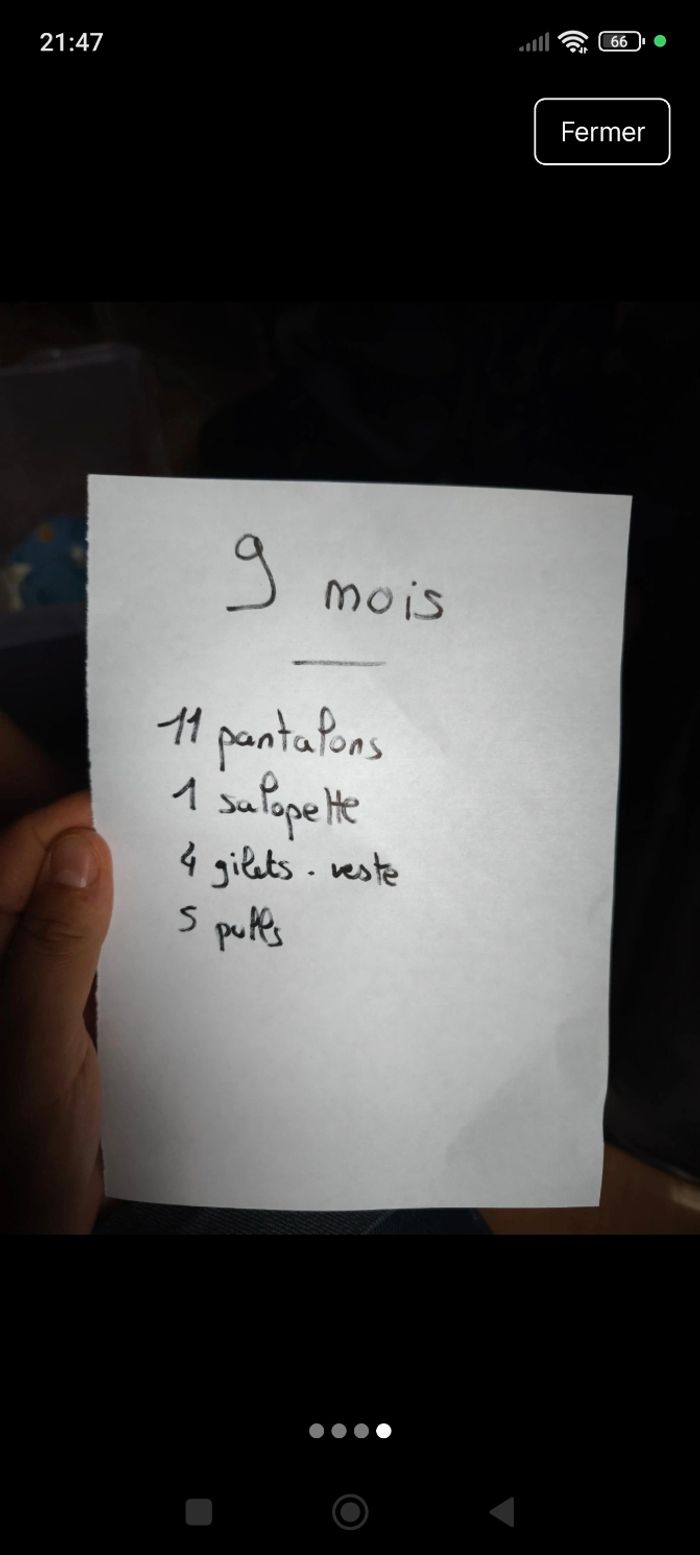 21:47
66
Fermer
9 mois
11 pantalons
1 salopette
4 gilets. veste
5 pulls